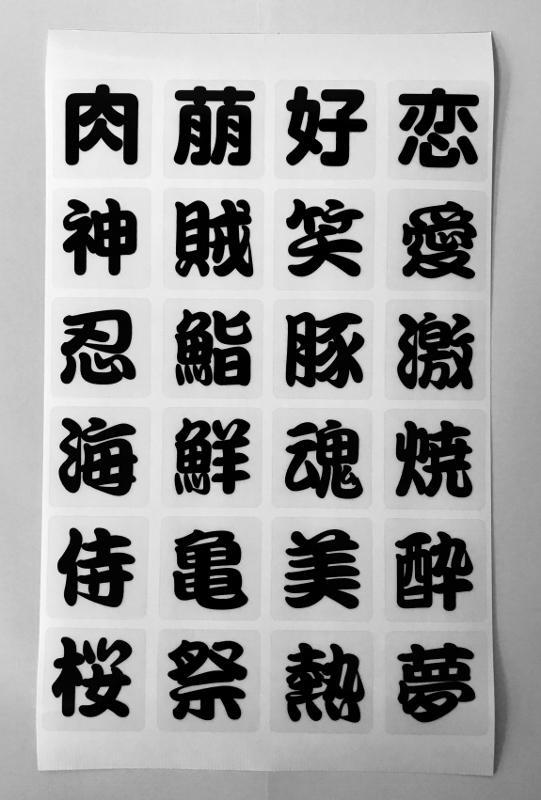 肉 萌 好 恋
神 賊 笑 愛
忍 鮨 豚 激
海 鮮 魂 焼
侍 亀 美 酔
桜 祭 熱 夢